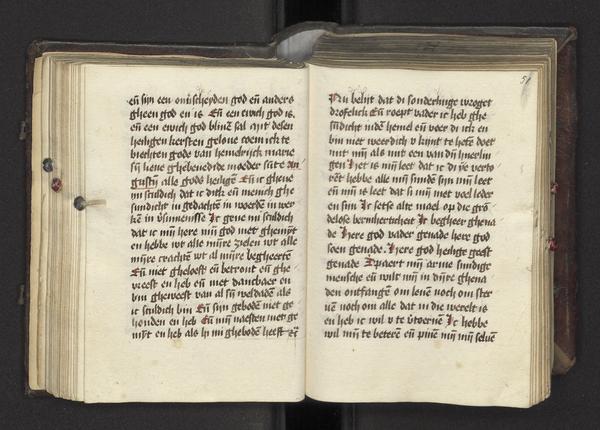 eñ sijn een onuscheyden god eñ anders
gheen god en is Eñ een ewich god is.
eñ een ewich god bliuē sal Mit desen
heiligen kersten geloue coem ic te
biechten gode van hemelrijck marie
sij lieue ghebenedide moeder sūte au
gustij alle gods heiligē Eñ ic gheue
mi sculdich dat ic dicke eñ menich ghe
sundicht in gedachtē in woerdē in wer
kē in v̄sumenisse Ic geue mi sculdich
dat ic mij here mij god niet ghemȳt
en hebbe wt alle mijre zielen wt alle
mijre crachtē wt al mijre begheertē
Eñ niet gheloeft eñ betrout eñ ghe
vreest en heb eñ niet dancbaer en
bin gheweest van al sij weldadē als
ic sculdich bin Eñ sijn gebodē niet ge
houden en heb Eñ mij naesten niet ge
mȳt en heb als hi mi ghebodē heeft eñ
51
Nu belyt dat di sonderlinge wroget
droefelick Eñ roept vader ic heb ghe
sūdicht indē hemel eñ voer di ick en
bin niet weerdich v kynt te hetē doet
mit mij als mit een van dij huerlin
gen Het is mij leet dat ic di ye verto
rēt hebbe alle mij sundē sijn mij leet
eñ mij is leet dat si mij niet veel leder
en sijn Ic setse alte mael op die gro
delose bermherticheit Ic begheer ghena
de Here god vader genade here god
soen genade. Here god heilige geest
genade Spaert mij arme sundige
mensche eñ wilt mij in dijre ghena
den ontfangē om leuē noch om ster
uē noch om alle dat in die werelt is
en heb ic wil v te v̄toernē Ic hebbe
wil mij te beterē eñ pinē mij mij seluē